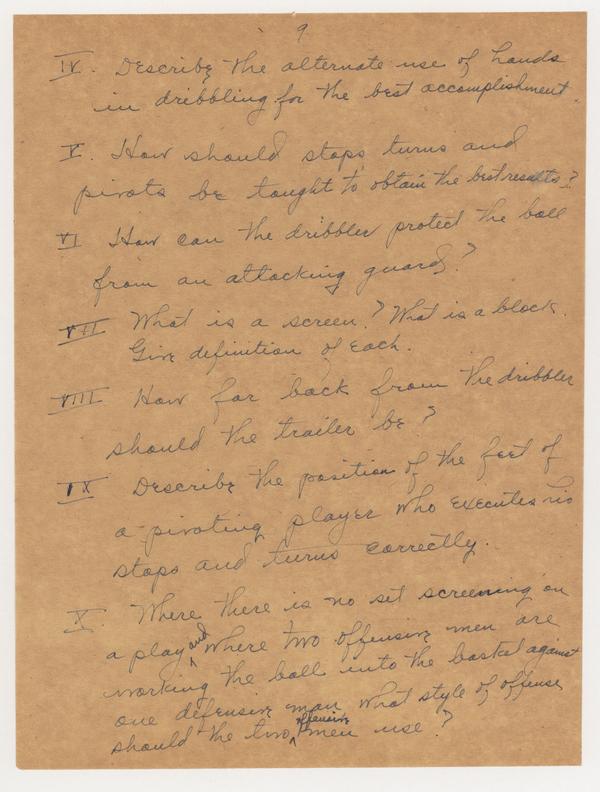 9
IV. Describe the alternate use of hands
in dribbling for the best accomplishment.
V. How should stops turns and
pivots be taught to obtain the best results?
VI How can the dribbler protect the ball
from an attacking guard?
VII What is a screen? What is a block.
Give definition of each.
VIII How far back from the dribbler
should the trailer be?
IX Describe the position of the feet of
a pivoting player who executes his
stops and turns correctly.
X. Where there is no set screening on
a play and where two offensive men are
working the ball into the basket against
one defensive man what style of offense
should the two offensive men use?